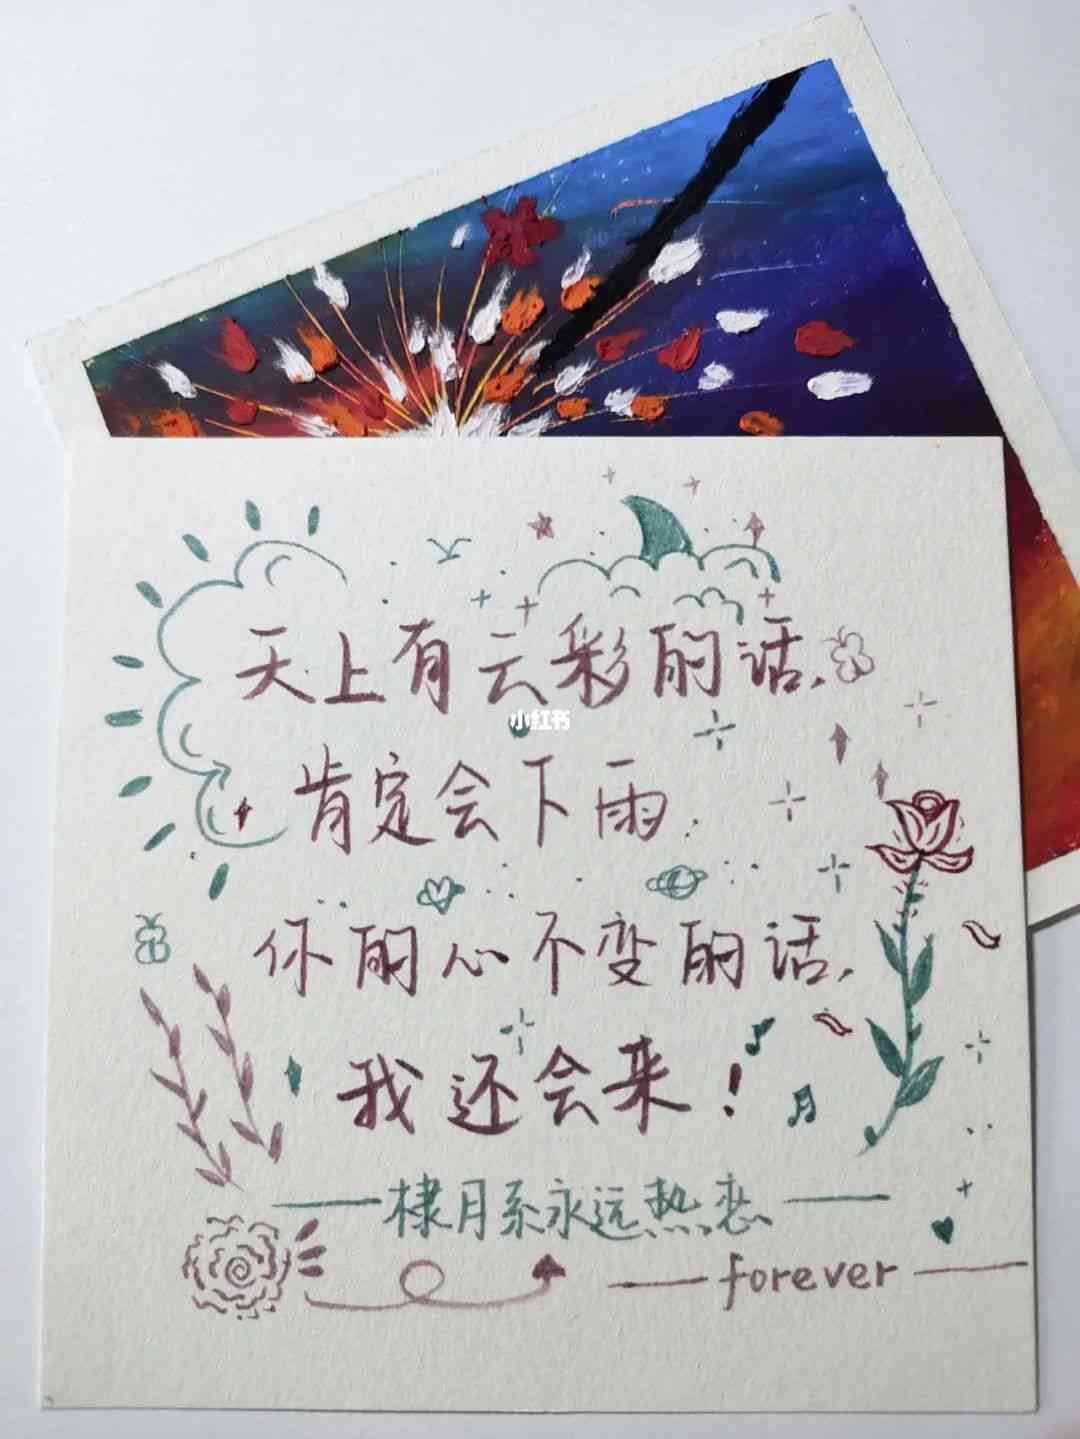 天上有云彩的话,
小红书
肯定会下雨.
你的心不变的话,
我还会来!
棣月系永远热恋
forever